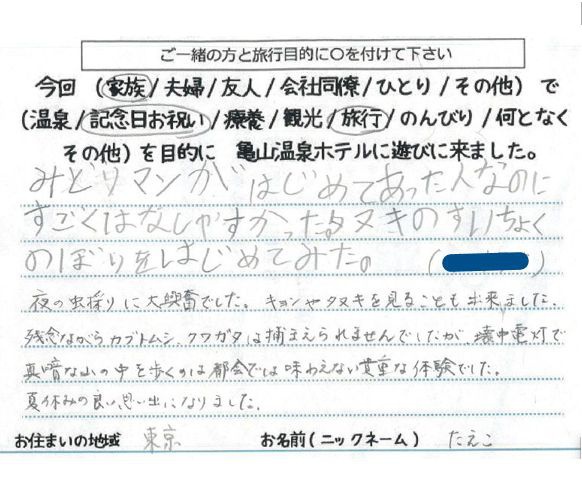 ご一緒の方と旅行目的に〇を付けて下さい
今回（家族/夫婦/友人/会社同僚/ひとり/その他）で
（温泉/記念日お祝い/療養/観光/旅行/のんびり/何となく
その他）を目的に 亀山温泉ホテルに遊びに来ました。
みどりマンがはじめてあった人なのに
すごくはなしやすかった。タヌキのすいちょく
のぼりをはじめてみた。（ ）
夜の虫採りに大興奮でした。キョンやタヌキを見ることも出来ました。
残念ながらカブトムシ、クワガタは捕まえられませんでしたが、懐中電灯で
真暗な山の中を歩くのは都会では味わえない貴重な体験でした。
夏休みの良い思い出になりました。
お住まいの地域 東京 お名前（ニックネーム） たえこ